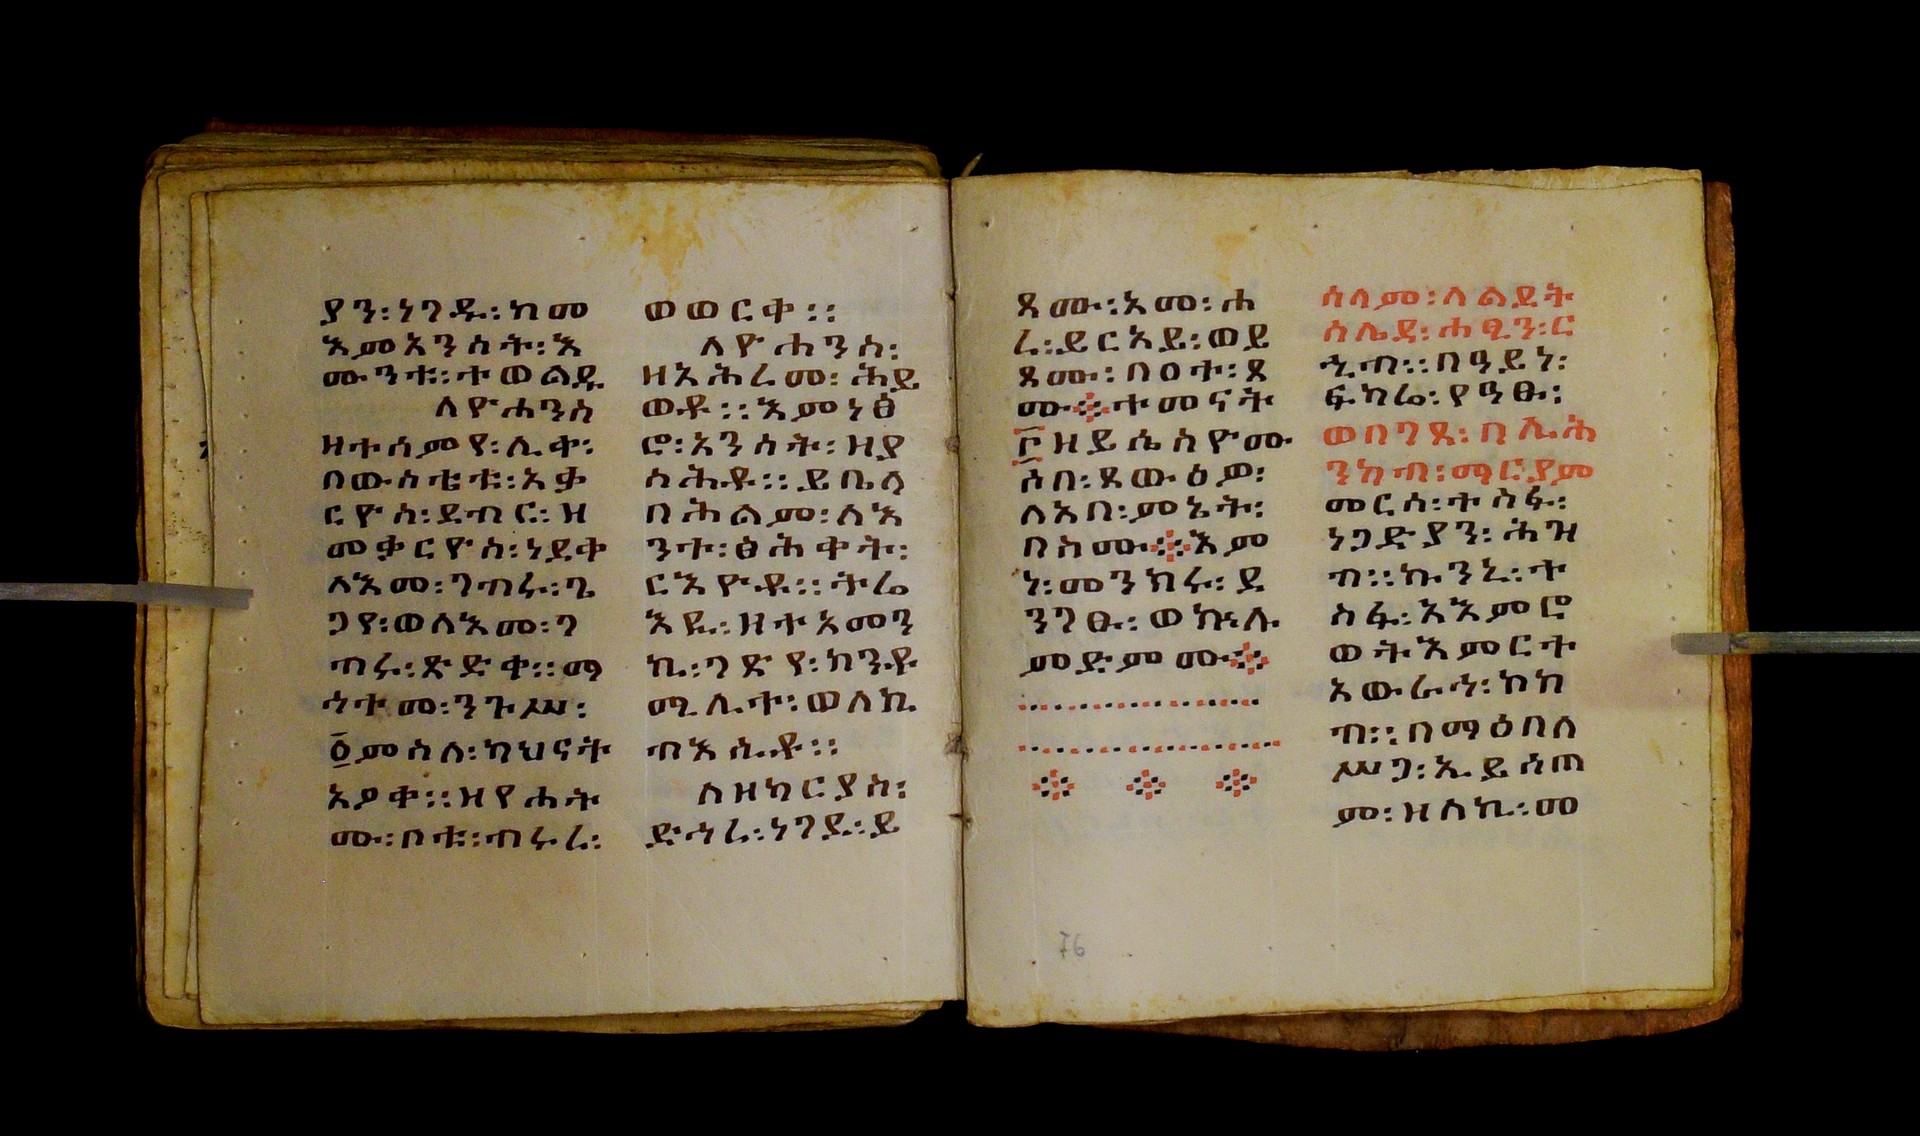 ያን፡ነገዱ፡ከመ
እምአንስት፡እ
ሙንቱ፡ተወልዱ
ለዮሐንስ
ዘተሰምየ፡ሊቀ፡
በውስቴቱ፡አቃ
ርዮስ፡ደብር፡ዝ
መቃርዮስ፡ነደቀ
ለእመ፡ገብሩ፡ጌ
ጋየ፡ወለእመ፡ገ
ብሩ፡ጽድቀ።ማ
ኅተመ፡ንጉሥ፡
፩ምስለ፡ካህናት
አዖቀ።ዝየሐት
ሙ፡ቦቱ፡ብሩረ፡
ወወርቀ።
ለዮሐንስ፡
ዘአሕረመ፡ሕይ
ወቶ።እምነፅ
ሮ፡አንስት፡ዘያ
ስሕቶ።ይቤላ
በሕልም፡ለእ
ንተ፡ፅሕቀት፡
ርእዮቶ።ትሬ
እዪ፡ዘተአመን
ኪ፡ገጽየ፡ከንቶ
ሚሊተ፡ወለኪ
ብእሲቶ።
ለዘካርያስ፡
ድኅረ፡ነገደ፡ይ
ጾሙ፡አመ፡ሐ
ረ፡ይርአይ፡ወይ
ጾሙ፡በዐተ፡ጾ
ሙ፨ተመናት
፫ዘይሴስዮሙ
ሰበ፡ጾውዕዎ፡
ለአበ፡ምኔት፡
በስሙ፨እም
ነ፡መንክሩ፡ደ
ንገፁ፡ወኵሉ
ምድምሙ፨
ሰላም፡ለልደት
ሰሌዳ፡ሐፂን፡ር
ኂብ።በዓይነ፡
ፍካሬ፡የዓፁ፡
ወበገጸ፡በሊሕ
ንከብ፡ማርያም
መርሰ፡ተስፋ፡
ነጋድያን፡ሕዝ
ብ።ኩንኒ፡ተ
ስፋ፡አእምሮ
ወትእምርተ
አውራኅ፡ከከ
ብ።በማዕበለ
ሥጋ፡ኢይሰጠ
ም፡ዝስኪ፡መ
76